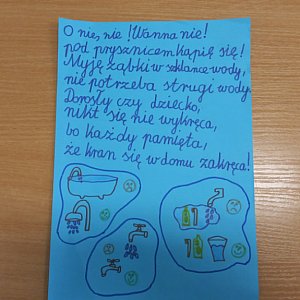 O nie, nie! Wanna nie!
pod prysznicem kąpię się!
Myję ząbki w szklance wody,
nie potrzeba strugi wody.
Dorosły czy dziecko,
nikt się nie wykręca,
bo każdy pamięta,
że kran się w domu zakręca!